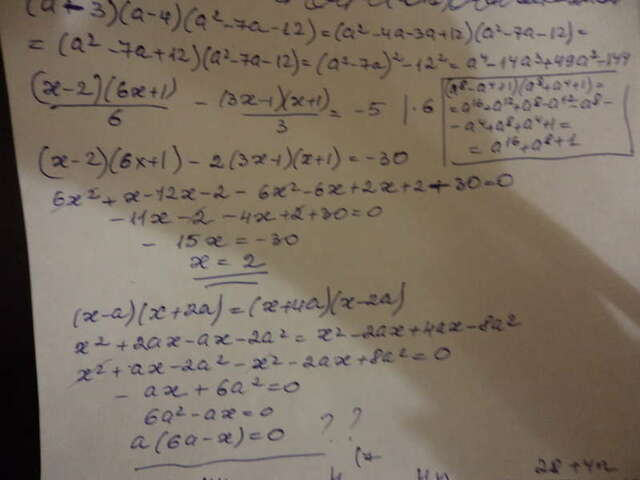 (a-3)(a-4)(a²-7a-12)=(a²-4a-3a+12)(a²-7a-12)=
=(a²-7a+12)(a²-7a-12)=(a²-7a)²-12²=a⁴-14a³+49a²-144
(x-2)(6x+1)/6 - (3x-1)(x+1)/3 = -5 |·6
(a⁸-a⁴+1)(a⁸+a⁴+1)=
=a¹⁶+a¹²+a⁸-a¹²-a⁸-
-a⁴+a⁸+a⁴+1=
=a¹⁶+a⁸+1
(x-2)(6x+1)-2(3x-1)(x+1)=-30
6x²+x-12x-2-6x²-6x+2x+2+30=0
-11x-2-4x+2+30=0
-15x=-30
x=2
(x-a)(x+2a)=(x+4a)(x-2a)
x²+2ax-ax-2a²=x²-2ax+4ax-8a²
x²+ax-2a²-x²-2ax+8a²=0
-ax+6a²=0
6a²-ax=0
a(6a-x)=0 ??